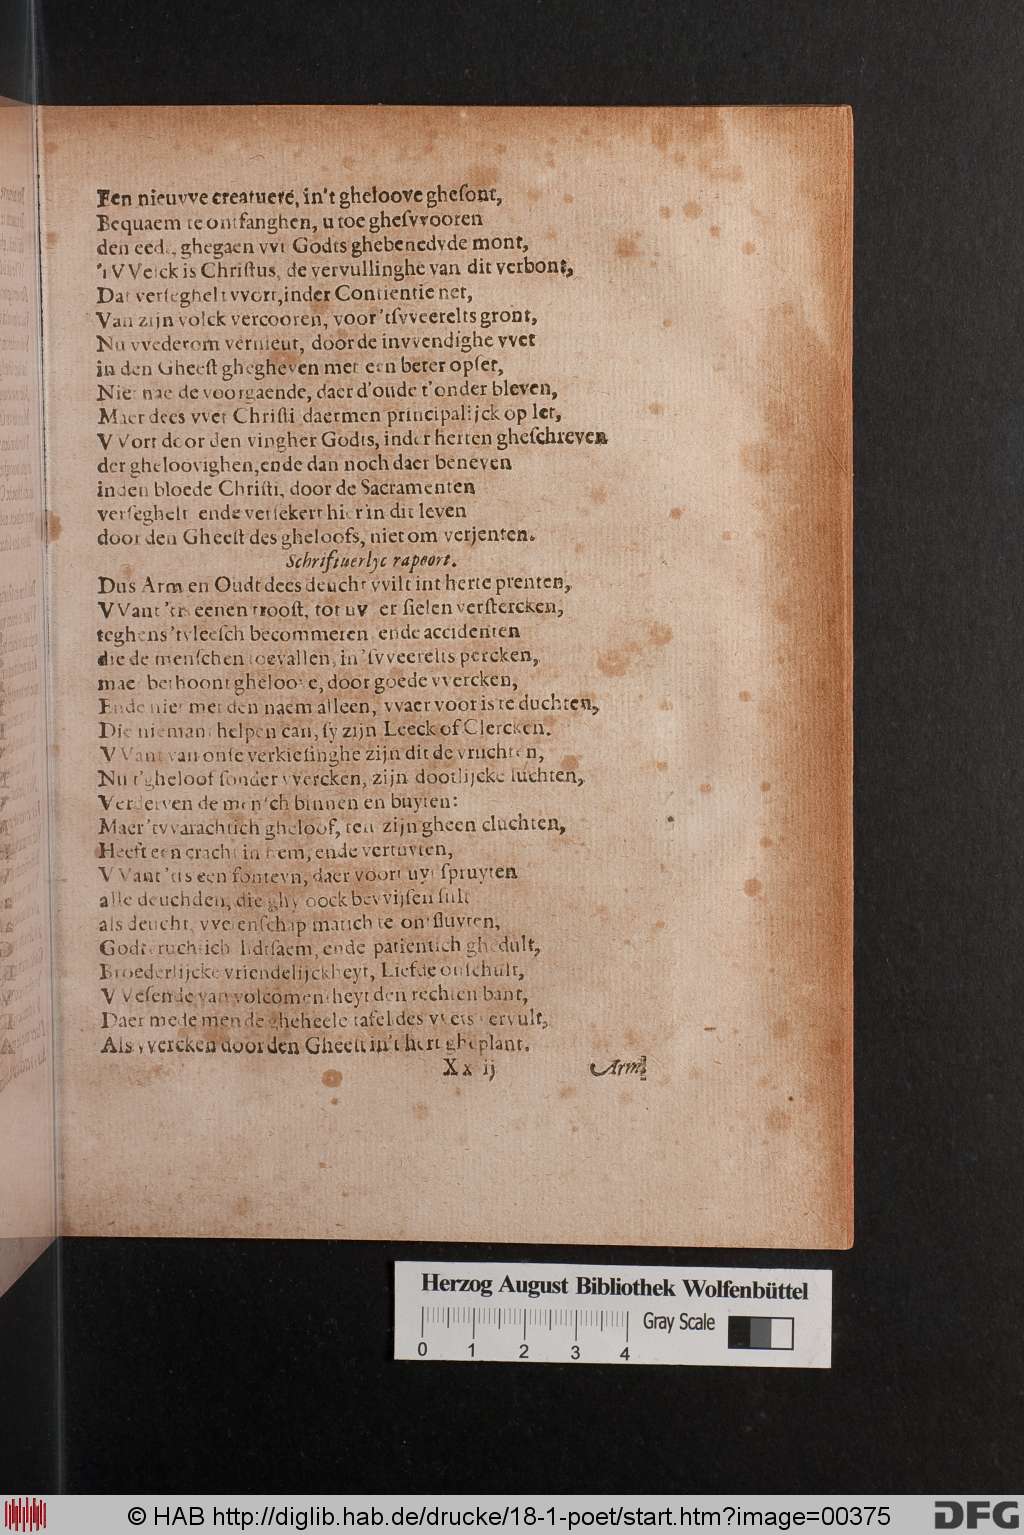 Een nieuvve creatuere, in't gheloove gheſont,
Bequaem te ontfanghen, u toe gheſvvooren
den eedt, ghegaen vvt Godts ghebenedyde mont,
't VVelck is Chriſtus, de vervullinghe van dit verbont,
Dat verſeghelt vvort, inder Contientie net,
Van zijn volck vercooren, voor 'tſvveerelts gront,
Nu vvederom vernieut, door de invvendighe vvet
in den Gheeſt ghegheven met een beter opſet,
Niet nae de voorgaende, daer d'oude t'onder bleven,
Maer dees vvet Chriſti daermen principalijck op let,
VVort door den vingher Godts, inder herten gheſchreven
der gheloovighen, ende dan noch daer beneven
inden bloede Chriſti, door de Sacramenten
verſeghelt ende verſekert hier in dit leven
door den Gheeſt des gheloofs, niet om verjenten.
Schriftuerlyc rapoort.
Dus Arm en Oudt dees deucht vvilt int herte prenten,
VVant 'tis eenen trooſt, tot uvver ſielen verſtercken,
teghens 'tvleeſch becommeren ende accidenten
die de menſchen toevallen, in 'ſvveerelts percken,
maer bethoont gheloove, door goede vvercken,
Ende niet met den naem alleen, vvaer voor is te duchten,
Die niemant helpen can, ſy zijn Leeck of Clercken.
VVant van onſe verkieſinghe zijn dit de vruchten,
Nu t'gheloof ſonder vvercken, zijn dootlijcke luchten,
Verderven de menſch binnen en buyten:
Maer 'tvvarachtich gheloof, ten zijn gheen cluchten,
Heeft een cracht in hem, ende vertuyten,
VVant 'tis een fonteyn, daer voort uyt ſpruyten
alle deuchden, die ghy oock bevvijſen ſult
als deucht, vvetenſchap matich te ontſluyten,
Godtvruchtich lidtſaem, ende patientich ghedult,
Broederlijcke vriendelijckheyt, Liefde onſchult,
VVeſende van volcomentheyt den rechten bant,
Daer mede men de gheheele tafel des vvets vervult,
Als vvercken door den Gheeſt in't hert gheplant.
Xx ij
Arm
Herzog August Bibliothek Wolfenbüttel
Gray Scale
0 1 2 3 4
© HAB http://diglib.hab.de/drucke/18-1-poet/start.htm?image=00375
DFG